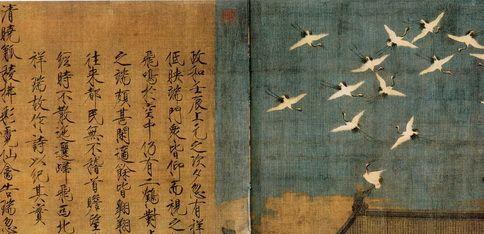 政和壬辰上元之次夕忽有祥
低映端門眾皆仰而視之
飛鳴於空中仍有二鶴對止
之端頗甚閒適餘皆翱翔
往來都民無不稽首瞻望
經時不散迤邐歸飛西北
祥瑞故作詩以紀其實
清曉觚稜拂彩霓仙禽告瑞忽